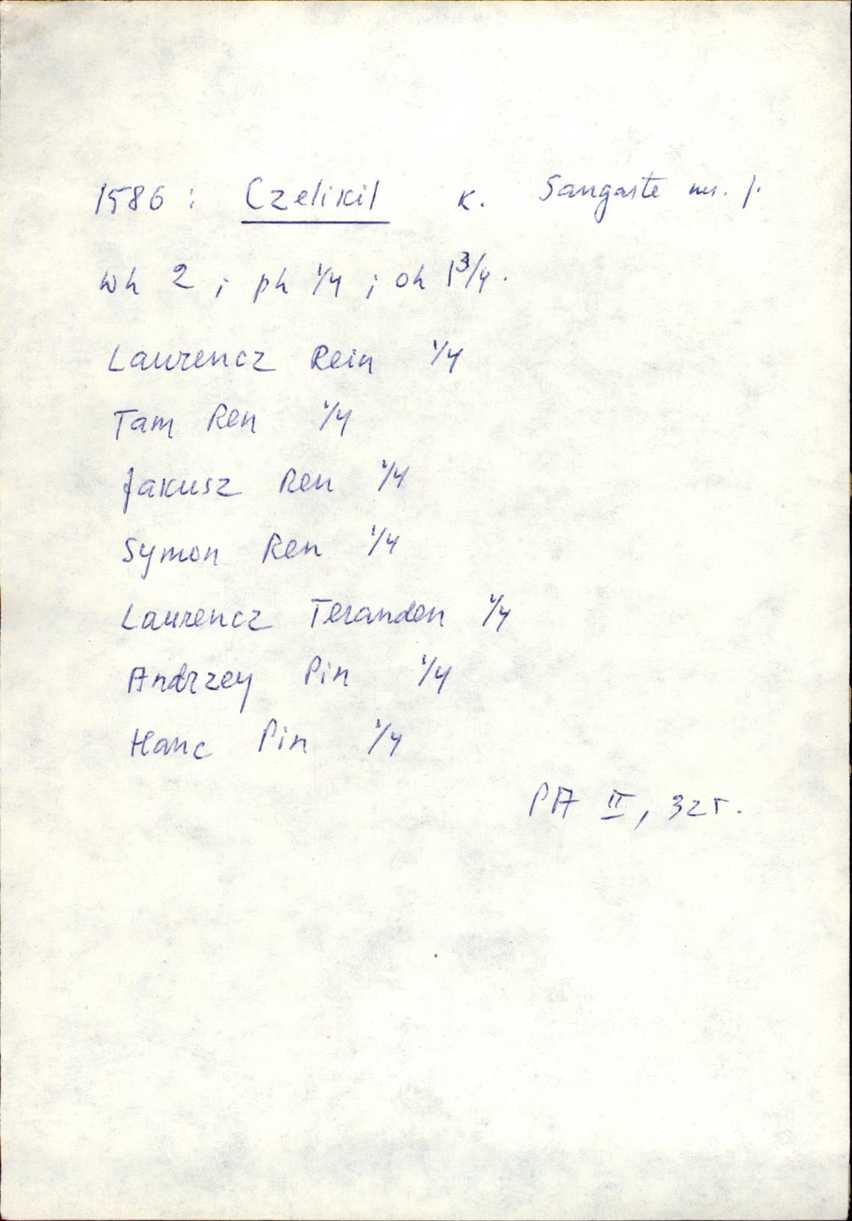 1586 : Czelikil k. Sangaste ms. j.
wh 2 ; ph 1/4 ; oh 1 3/4.
Laurencz Rein 1/4
Tam Ren 1/4
Jakusz Ren 1/4
Symon Ren 1/4
Laurencz Teranden 1/4
Andrzey Pin 1/4
Hanc Pin 1/4
PA II, 32r.